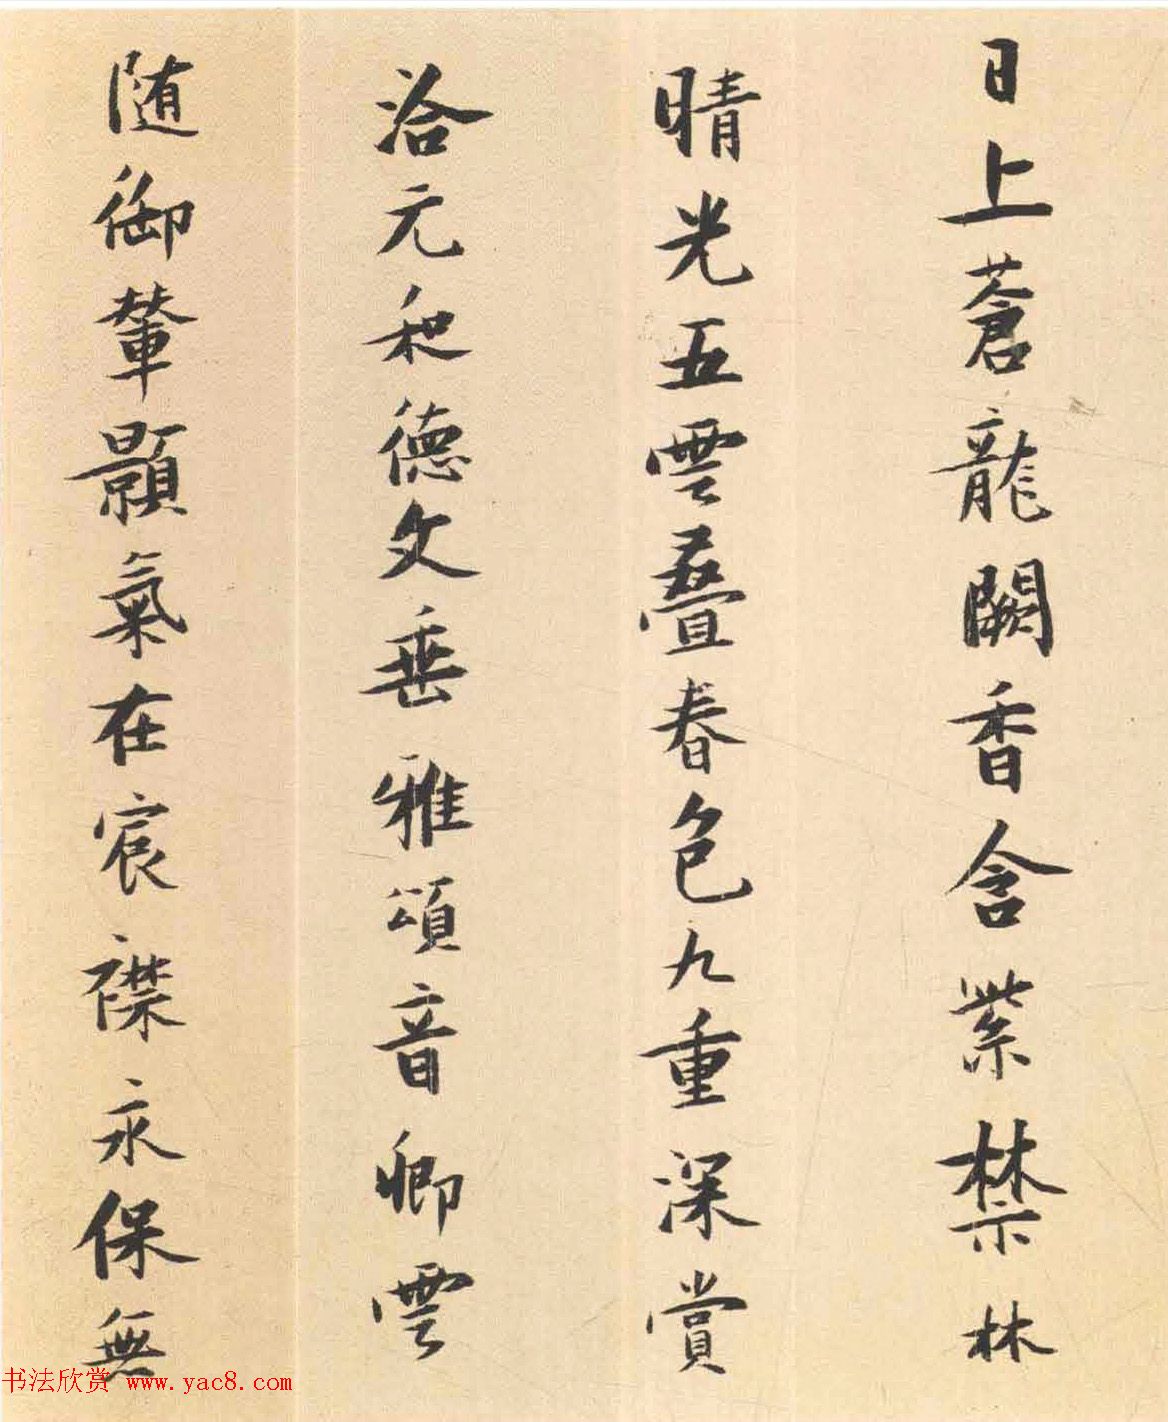 日上蒼龍闕香含紫禁林
晴光五雲疊春色九重深賞
洽元和德文垂雅頌音卿雲
随御輦顥氣在宸襟永保無
书法欣赏 www.yac8.com